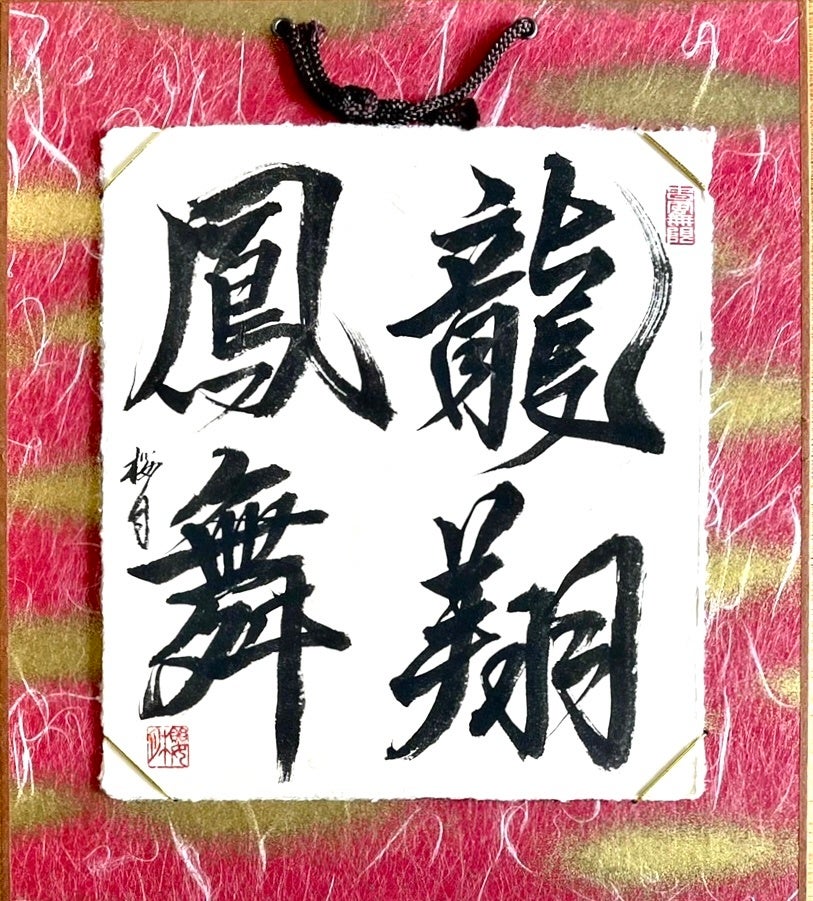 龍翔
鳳舞
桜月